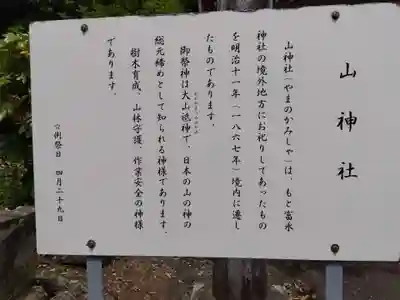 山神社
山神社(やまのかみしゃ)は、もと富永
神社の境外地方にお祀りしてあったもの
を明治十一年(一八六七年)境内に遷し
たものであります。
御祭神は大山祇神で、日本の山の神の
総元締めとして知られる神様であります。
樹木育成、山林守護、作業安全の神様
であります。
☆例祭日 四月二十九日